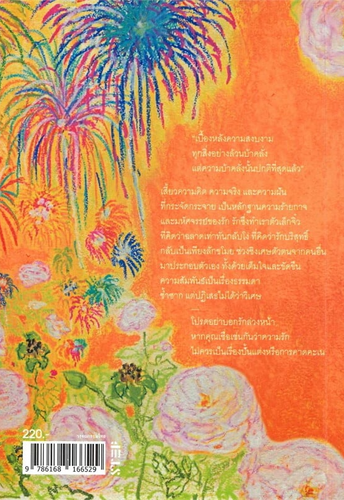 "เบื้องหลังความสงบงาม
ทุกสิ่งอย่างล้วนบ้าคลั่ง
แต่ความบ้าคลั่งนั้นปกติที่สุดแล้ว"
เสี้ยวความคิด ความจริง และความฝัน
ที่กระจัดกระจาย เป็นหลักฐานความร้ายกาจ
และมหัศจรรย์ของรัก รักซึ่งทำเราตัวเล็กจิ๋ว
ที่คิดว่าฉลาดเท่าทันกลับโง่ ที่คิดว่ารักบริสุทธิ์
กลับเป็นเพียงลักขโมย ช่วงชิงเศษตัวตนจากคนอื่น
มาประกอบตัวเอง ทั้งด้วยเต็มใจและขัดขืน
ความสัมพันธ์เป็นเรื่องธรรมดา
ซ้ำซาก แต่ปฏิเสธไม่ได้ว่าวิเศษ
โปรดอย่าบอกรักล่วงหน้า
หากคุณเชื่อเช่นกันว่าความรัก
ไม่ควรเป็นเรื่องปั้นแต่งหรือการคาดคะเน
220.-
9 786168 166529